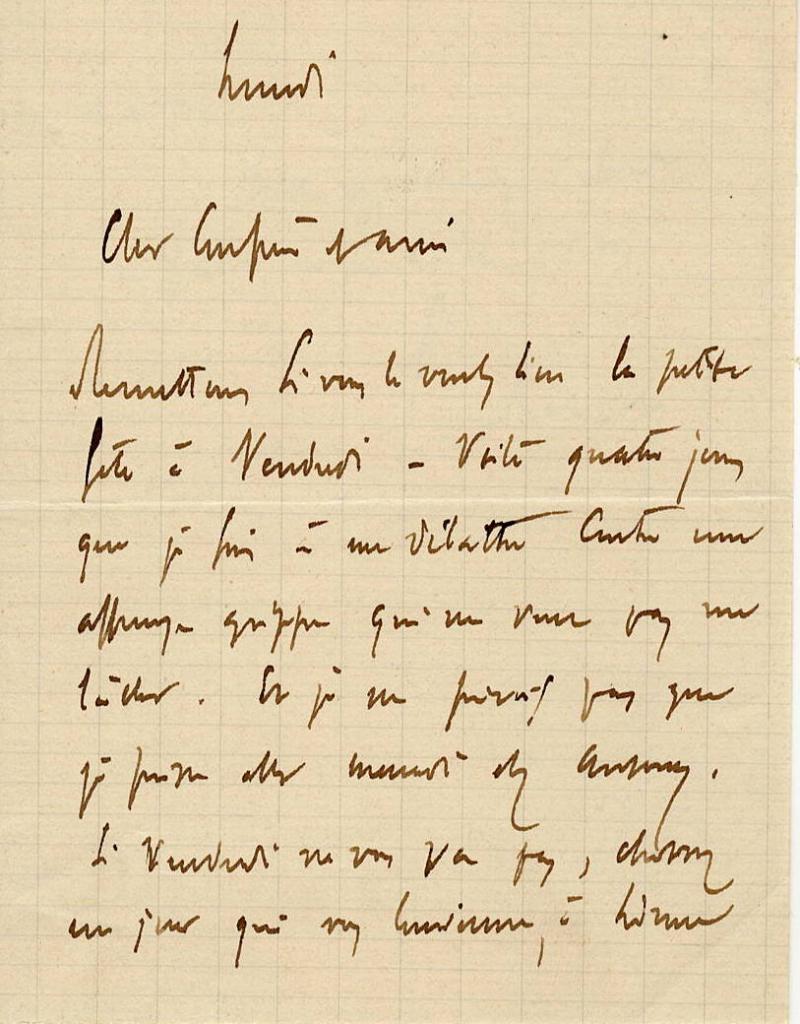 Lundi
Cher Confrère et ami
Remettons si vous le voulez bien la petite
fête à Vendredi – Voilà quatre jours
que je suis à me débattre contre une
affreuse grippe qui ne veut pas me
lâcher. Et je ne prévois pas que
je puisse aller mercredi chez
Si Vendredi ne vous va pas, choisissez
un jour qui vous convienne, à